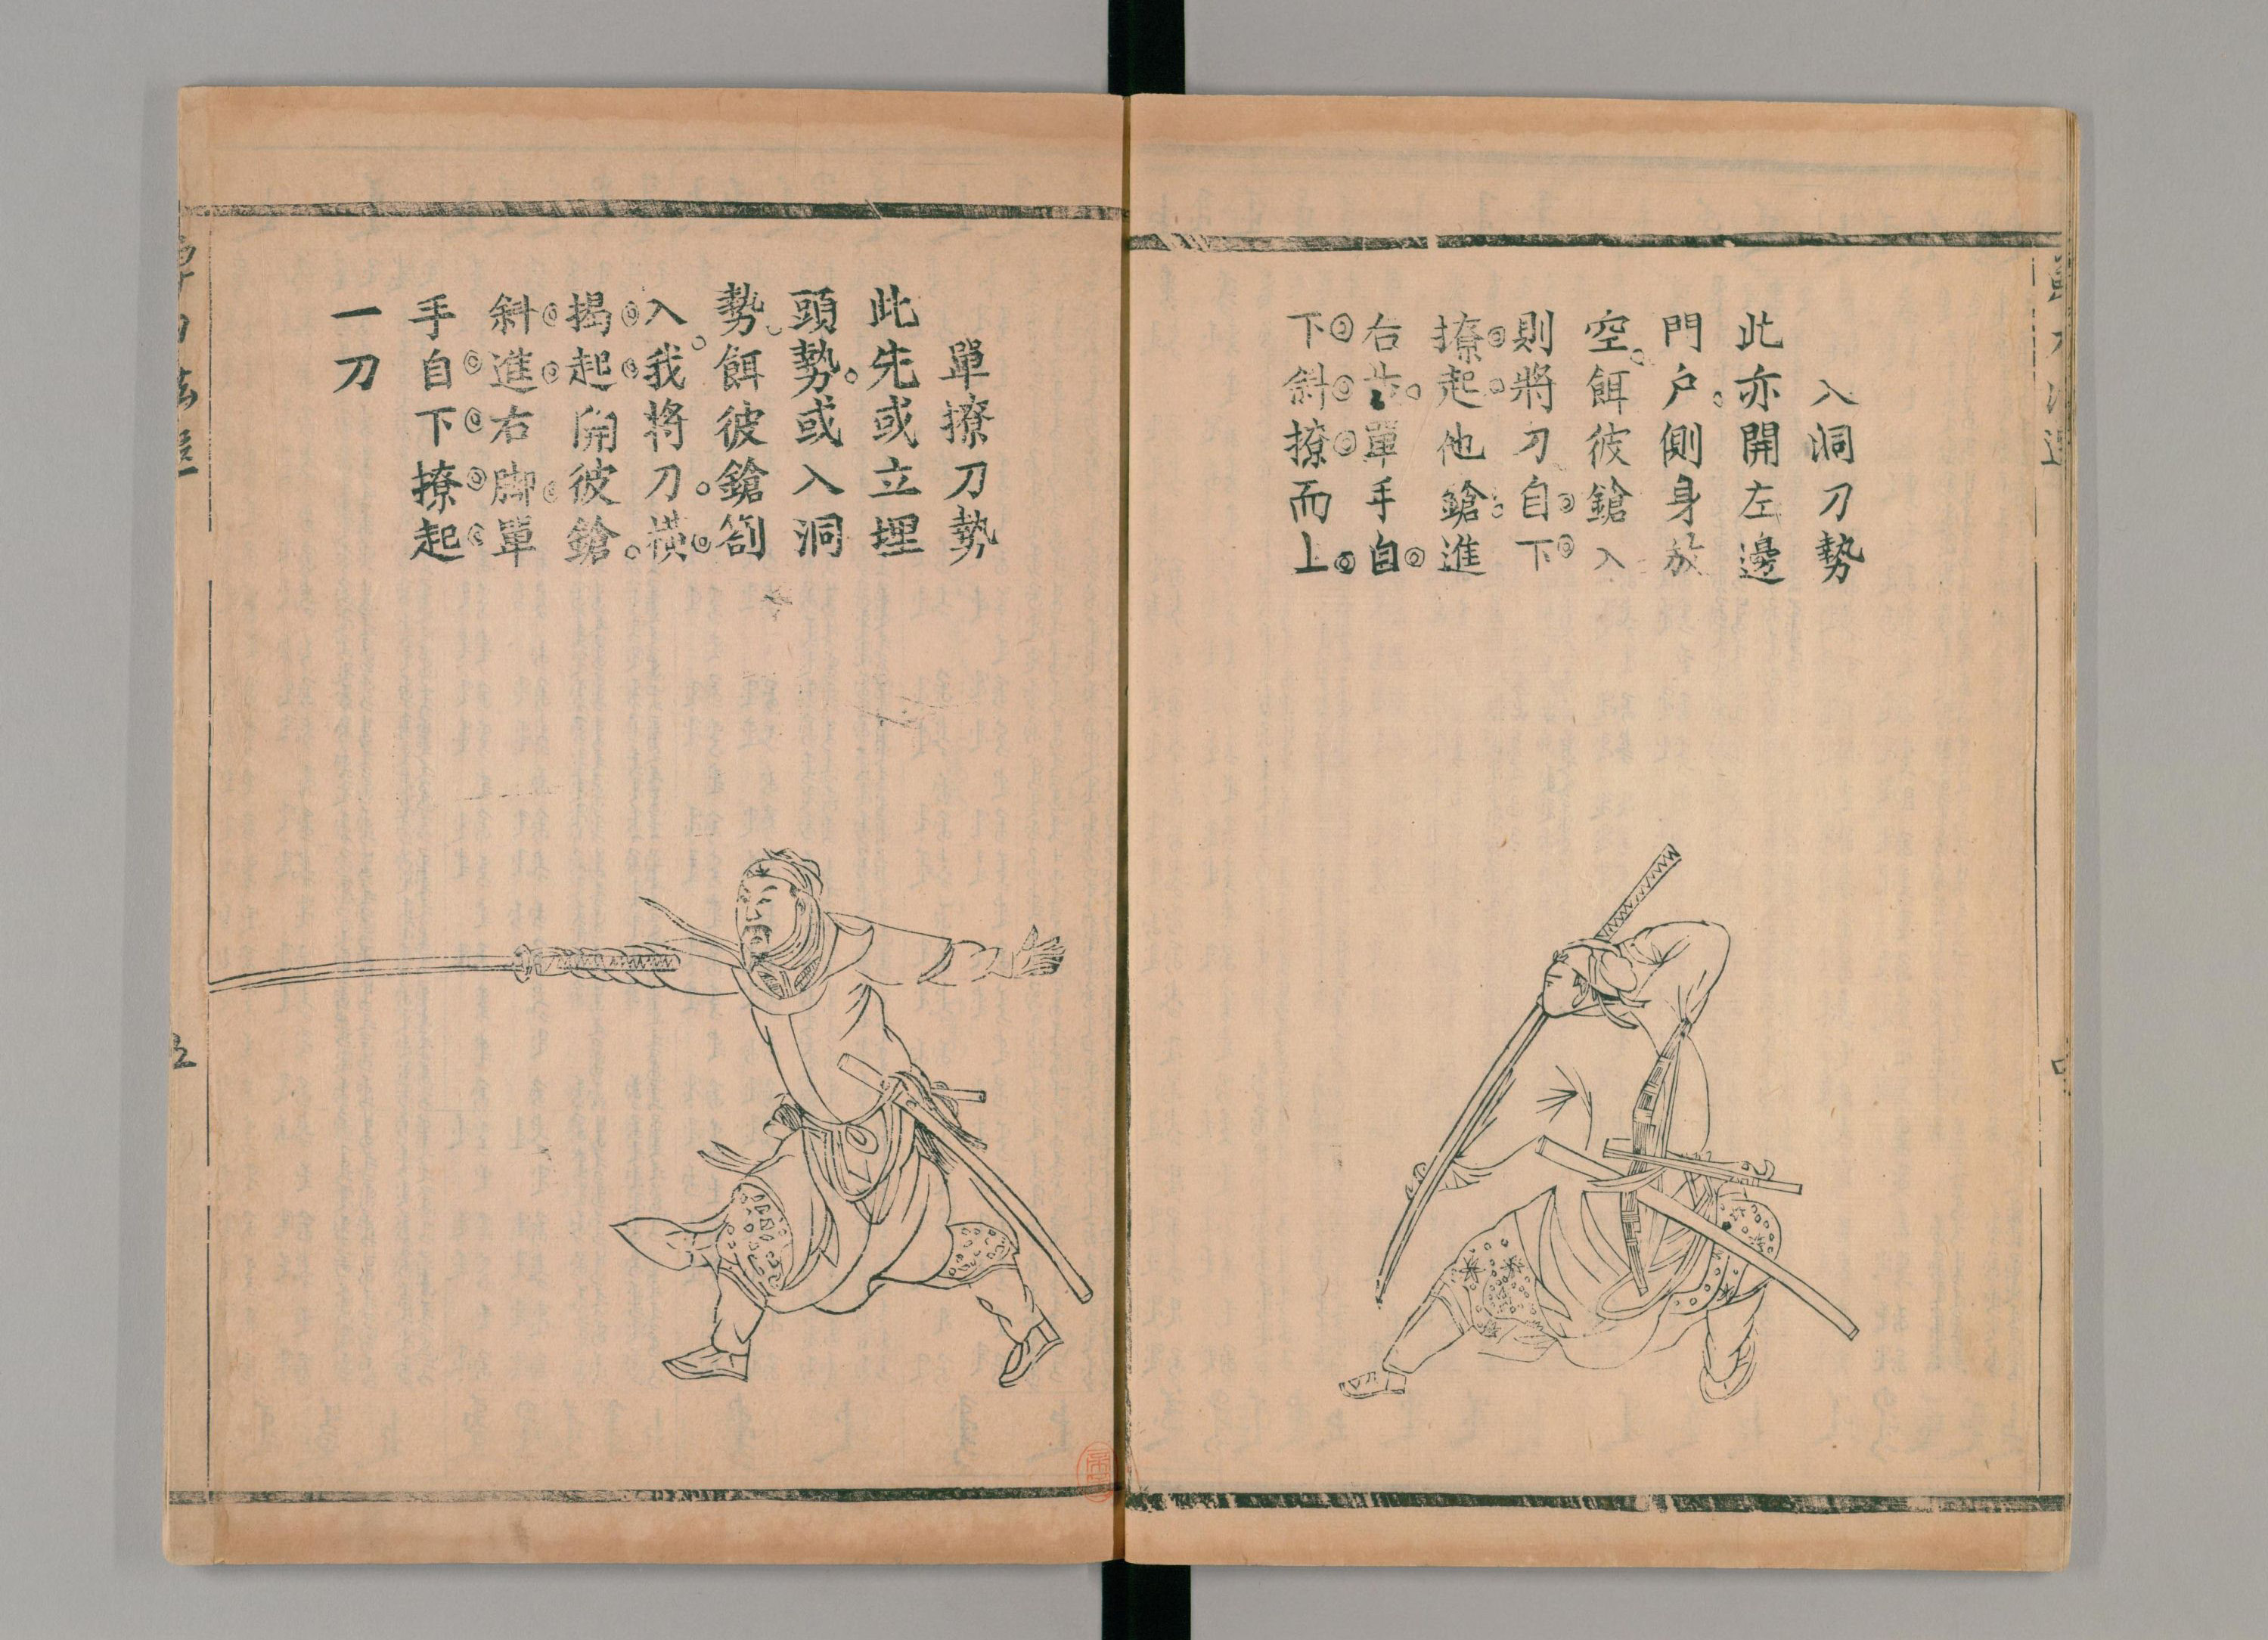 入洞刀勢
此亦開左邊
門户側身放
空餌彼鎗入
則將刀自下
撩起他鎗進
右步單手自
下斜撩而上
單撩刀勢
此先或立埋
頭勢或入洞
勢餌彼鎗劄
入我将刀橫
揭起開彼鎗
斜進右脚單
手自下撩起
一刀